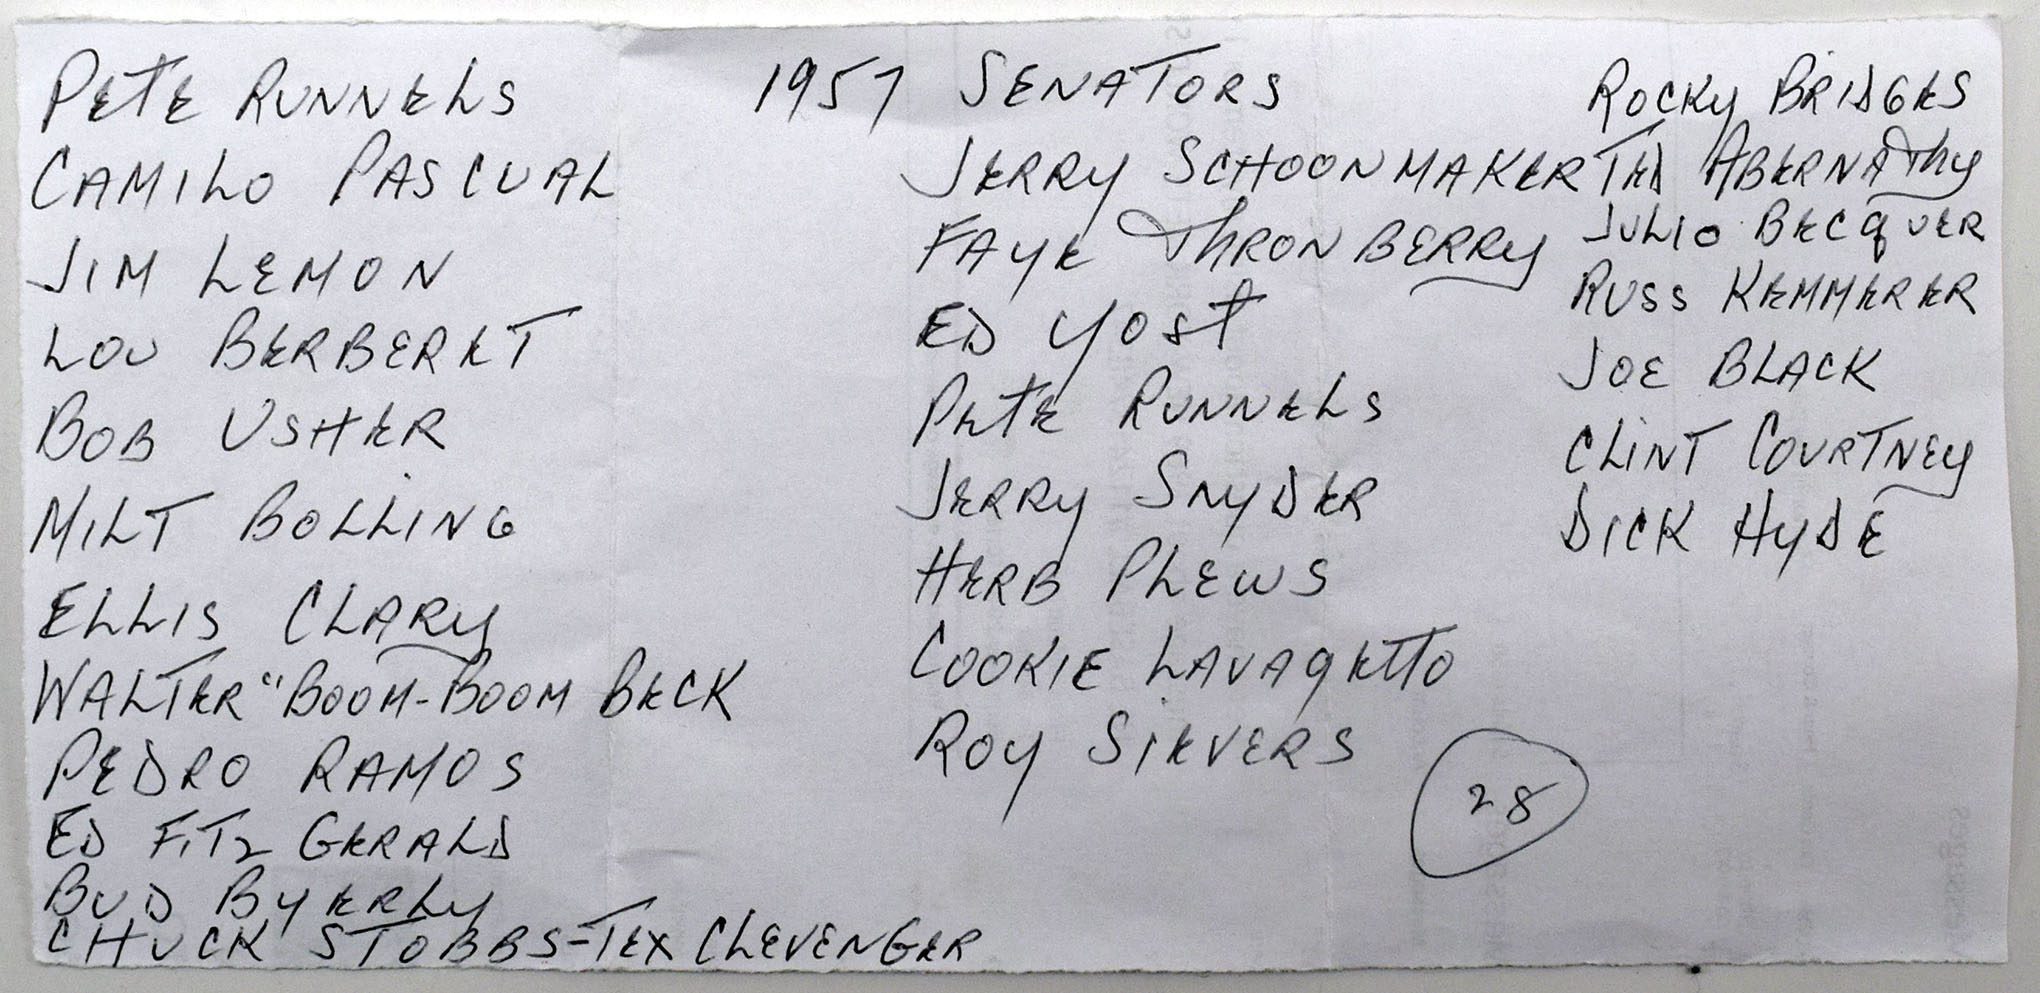 PETE RUNNELS
CAMILO PASCUAL
JIM LEMON
LOU BERBERET
BOB USHER
MILT BOLLING
ELLIS CLARY
WALTER "BOOM-BOOM BECK
PEDRO RAMOS
ED FITZ GERALD
BUD BYERLY
CHUCK STOBBS-TEX CLEVENGER
1957 SENATORS
JERRY SCHOONMAKER
FAYE THRONBERRY
ED YOST
PETE RUNNELS
JERRY SNYDER
HERB PLEWS
COOKIE LAVAGETTO
ROY SIEVERS
28
ROCKY BRIDGES
TED ABERNATHY
JULIO BECQUER
RUSS KEMMERER
JOE BLACK
CLINT COURTNEY
DICK HYDE